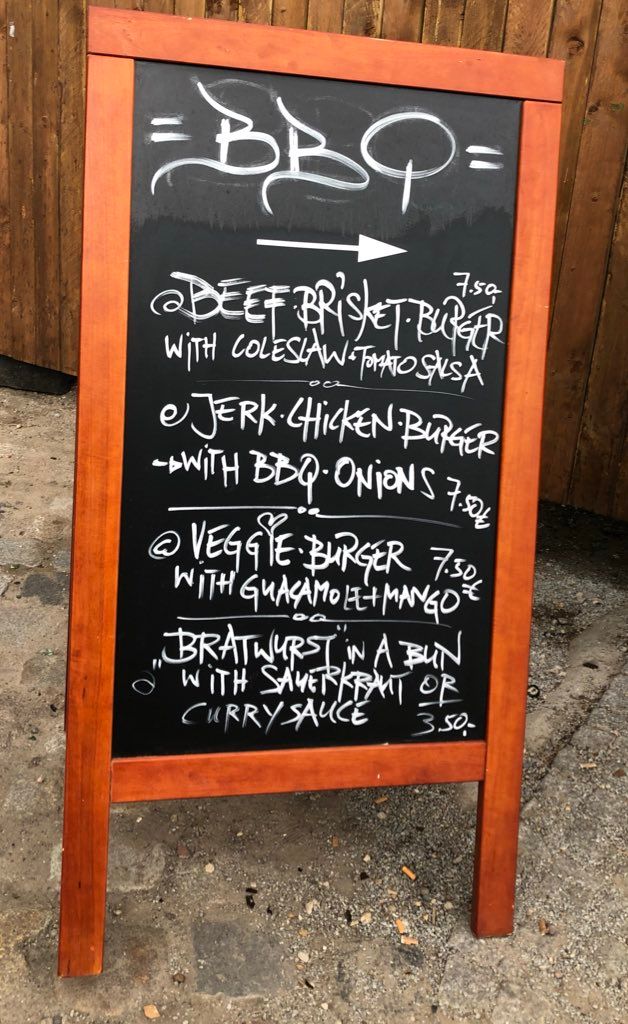 = BBQ =
7.50,-
BEEF·BRISKET·BURGER
WITH COLESLAW+TOMATO SALSA
JERK·CHICKEN·BURGER
WITH BBQ·ONIONS 7.50€
VEGGIE·BURGER 7.50€
WITH GUACAMOLE+MANGO
"BRATWURST" IN A BUN
WITH SAUERKRAUT OR
CURRY SAUCE 3.50,-